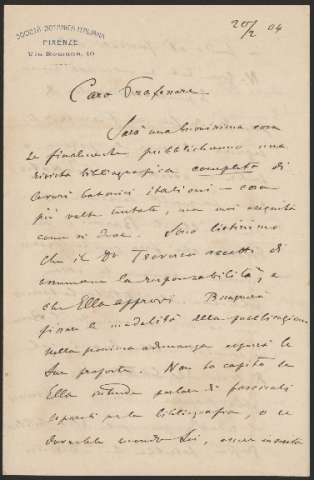 SOCIETÀ BOTANICA ITALIANA
FIRENZE
Via Romana, 19
20/2 04
Caro Professore
Sarà una buonissima cosa
se finalmente pubblicheremo una
rivista bibliografica completa di
lavori botanici italiani — cosa
più volte tentata, ma mai eseguita
come si deve. Sono lietissimo
che il Dr Traverso accetti di
assumere la responsabilità, e
che Ella approvi. Bisognerà
fissare le modalità della pubblicazione
nella prossima adunanza appena le
Sue proposte. Non ho capito se
Ella intende parlare di fascicoli
separati per la bibliografia, o se
dovrebbe secondo Lei, essere inserita